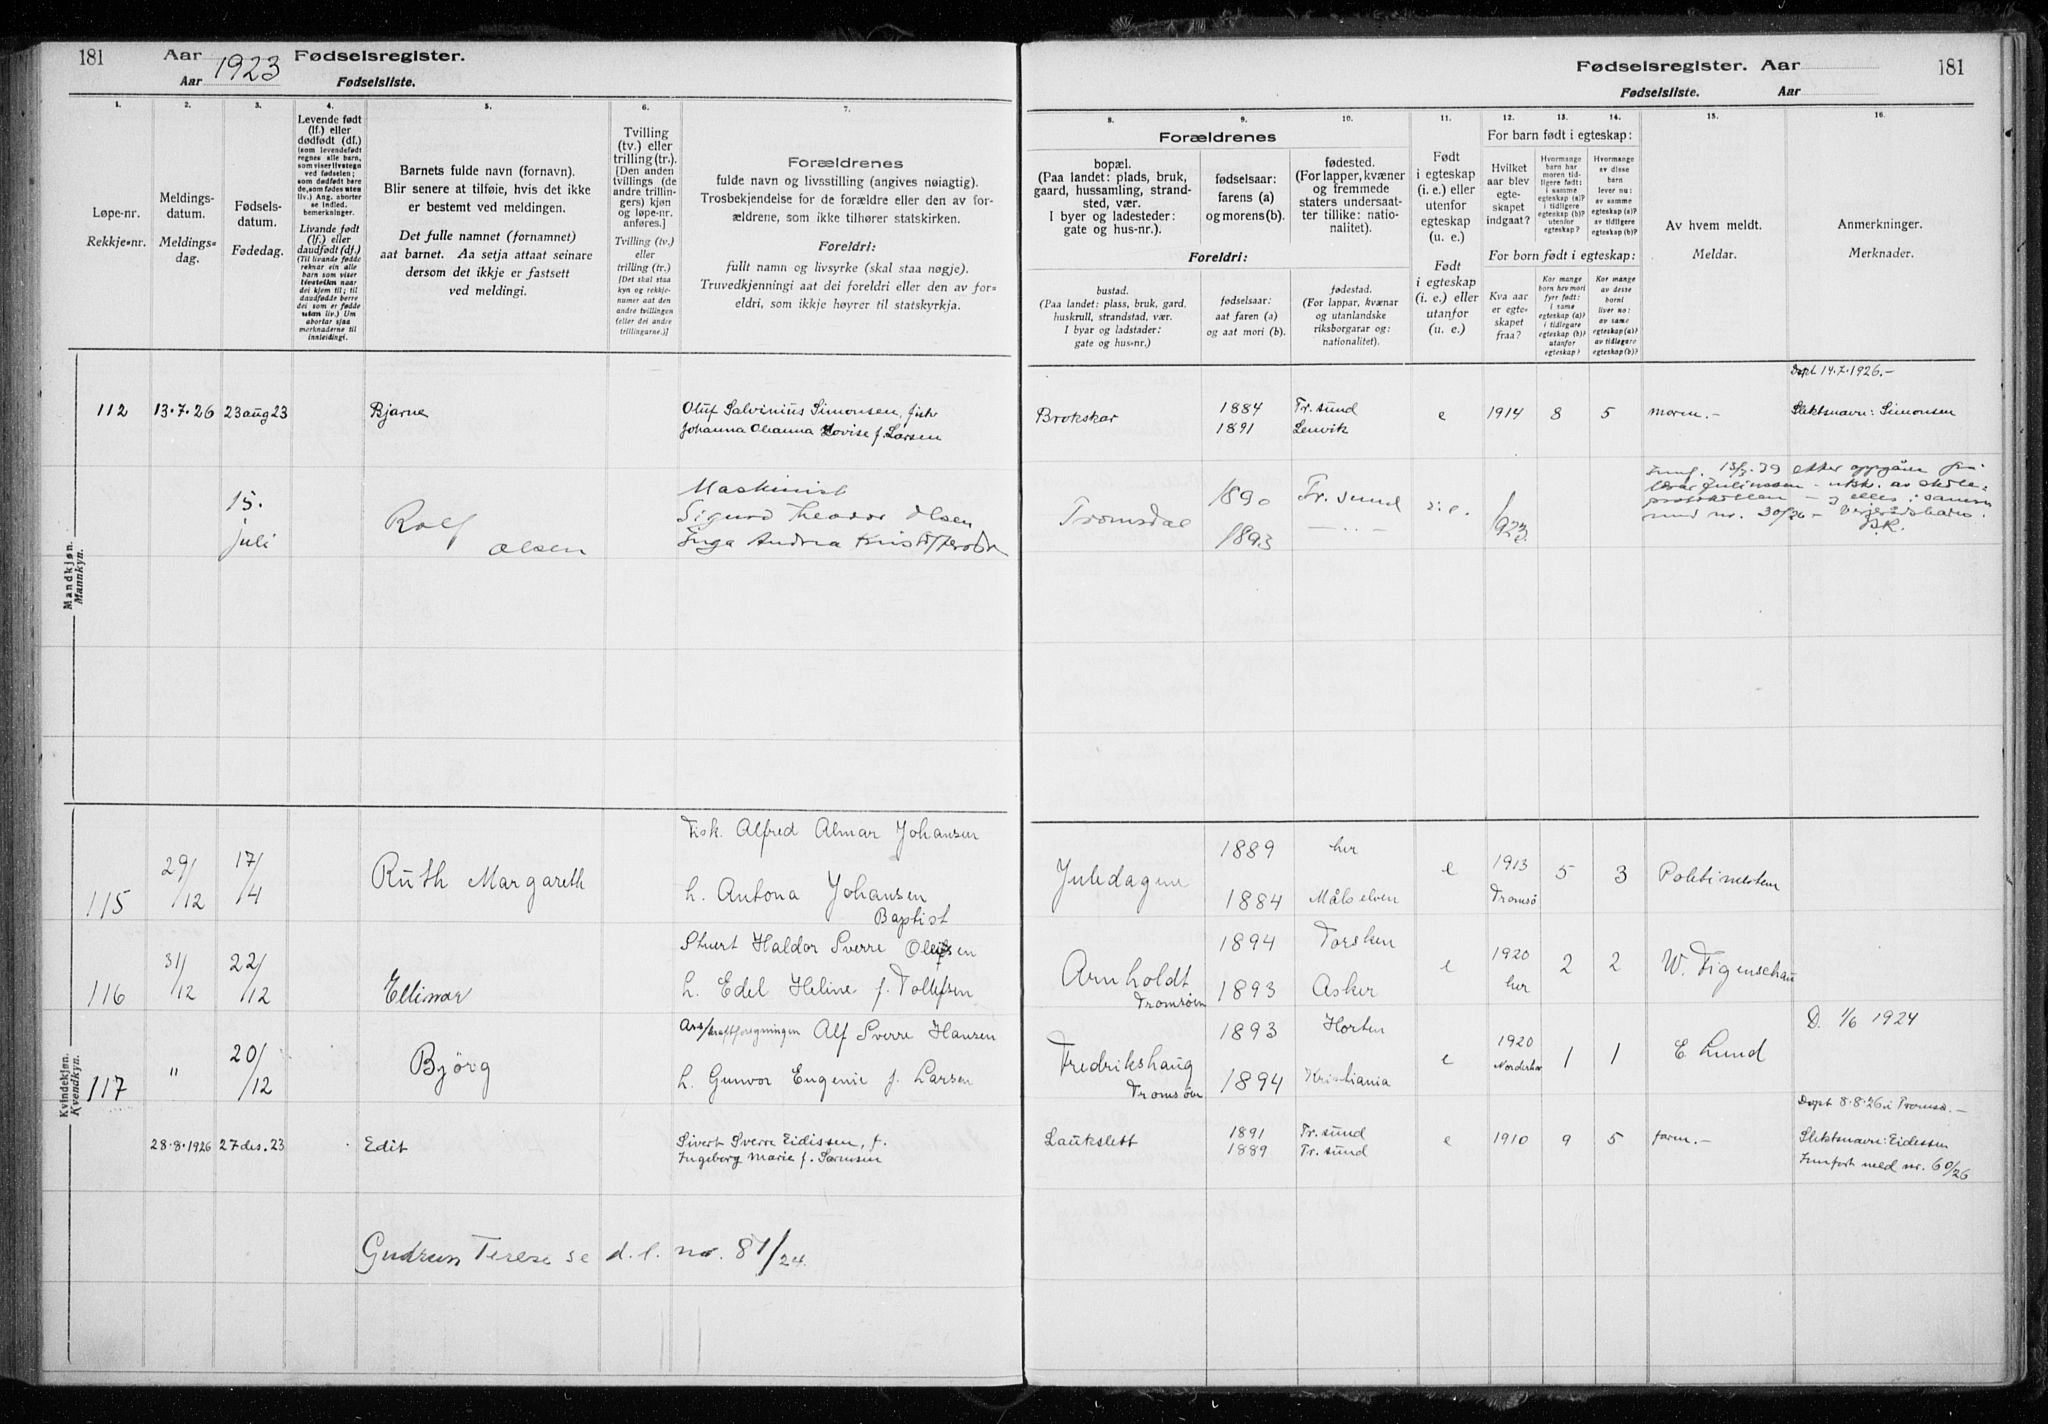 181
Aar 1923 Fødselsregister.
Aar Fødselsliste.
1. 2. 3. 4. 5. 6. 7.
Løpe-nr.
Rekkje-nr.
Meldings-
datum.
Meldings-
dag.
Fødsels-
datum.
Fødedag.
Levende født
(lf.) eller
dødfødt (df.)
(som levendefødt
regnes alle barn,
som viser livstegn
ved fødselen;
som dødfødt bare
de, som fødes uten
liv.) Ang. aborter
se indled.
bemerkninger.
Livande født
(lf.) eller
daudfødt (df.)
(Til livande fødde
reknar ein alle
barn som viser
livsteikn naar
dei kjem til; til
daudfødde berre
dei som er fødde
utan liv.) Um
abortar sjaa
merknaderne til
innleidingi.
Barnets fulde navn (fornavn).
Blir senere at tilføie, hvis det ikke
er bestemt ved meldingen.
Det fulle namnet (fornamnet)
aat barnet. Aa setja attaat seinare
dersom det ikkje er fastsett
ved meldingi.
Tvilling
(tv.) eller
trilling (tr.).
[Den anden
tvillings (de
andre trillin-
gers) kjøn
og løpe-nr.
anføres.]
Tvilling (tv.)
eller
trilling (tr.)
[Det skal staa
kyn og rekkje-
numer aat den
andre tvillingen
(eller dei andre
trillingarne.)]
Forældrenes
fulde navn og livsstilling (angives nøiagtig).
Trosbekjendelse for de forældre eller den av for-
ældrene, som ikke tilhører statskirken.
Foreldri:
fullt namn og livsyrke (skal staa nøgje).
Truvedkjenningi aat dei foreldri eller den av for-
eldri, som ikkje høyrer til statskyrkja.
Mandkjøn.
Mannkyn.
112 13.7.26 23 aug 23 Bjarne
Oluf Salvinius Simonsen, fisk
Johanna Oleanna Lovise f. Larsen
15.
juli
Rolf
Olsen
Maskinist
Sigurd Theodor Olsen
Inga Andrea
Kvindekjøn.
Kvendkyn.
115 29/12 17/4 Ruth Margareth
Fisk. Alfred Almar Johansen
h. Antona Johansen
Baptist
116 31/12 22/12 Ellinor
Stuert Haldor Sverre Olufsen
h. Edel Heline f. Tollefsen
117 " 20/12 Bjørg
Alf Sverre Hansen
h. Gunvor Eugenie f. Larsen
28.8.1926 27 des. 23 Edit
Sivert Sverre Eidissen, f.
Ingeborg Marie f. Sørensen
Gudrun Terese se d.l. nr. 87/24.
Fødselsregister. Aar 181
Fødselsliste. Aar
8. 9. 10. 11. 12. 13. 14. 15. 16.
Forældrenes
bopæl.
(Paa landet: plads, bruk,
gaard, hussamling, strand-
sted, vær.
I byer og ladesteder:
gate og hus-nr.).
fødselsaar:
farens (a)
og morens (b).
fødested.
(For lapper, kvæner
og fremmede
staters undersaat-
ter tillike: natio-
nalitet).
Foreldri:
bustad.
(Paa landet: plass, bruk, gard,
huskrull, strandstad, vær.
I byar og ladstader:
gate og hus-nr.)
fødselsaar:
aat faren (a)
og aat mori (b).
fødestad.
(For lappar, kvænar
og utanlandske
riksborgarar og:
nationalitet).
Født
i egteskap
(i. e.) eller
utenfor
egteskap
(u. e.)
Født
i egteskap
(i. e.) eller
utanfor
(u. e.).
For barn født i egteskap:
Hvilket
aar blev
egte-
skapet
indgaat?
Hvormange
barn har
moren tid-
ligere født:
i samme
egteskap (a)?
i tidligere
egteskap (b)?
utenfor
egteskap?
Hvormange
av disse
barn
lever nu:
av samme
egteskap (a)?
av tidligere
egteskap (b)?
For born født i egteskap:
Kva aar
er egte-
skapet
fraa?
Kor mange
born hev mori
fyrr født:
i same
egteskap (a)?
i tidlegare
egteskap (b)?
utanfor
egteskap?
Kor mange
av desse
borni
liver no:
av same
egteskap (a)?
av tidlegare
egteskap (b)?
Av hvem meldt.
Meldar.
Anmerkninger.
Merknader.
Brokskar 1884 Tr.sund e 1914 8 5 moren.-
1891 Lenvik
Døpt 14.7.1926.-
Slektsnavn: Simonsen
Tromsdal 1890 Tr.sund i.e. 1923
1893 -"-
Juledagene 1889 her e 1913 5 3 Politimesteren
1884 Målselven Tromsø
Arnholdt 1894 Torsken e 1920 2 2 W. Figenschau
Tromsøen 1893 Asker her
Fredrikshaug 1893 Horten e 1920 1 1 E. Lund
Tromsøen 1894 Kristiania
D. 1/6 1924
Laukslett 1891 Tr.sund e 1910 9 5 faren.-
1889 Tr.sund
Døpt 8.8.26 i Tromsø.-
Slektsnavn: Eidissen
Innført meld nr. 60/26